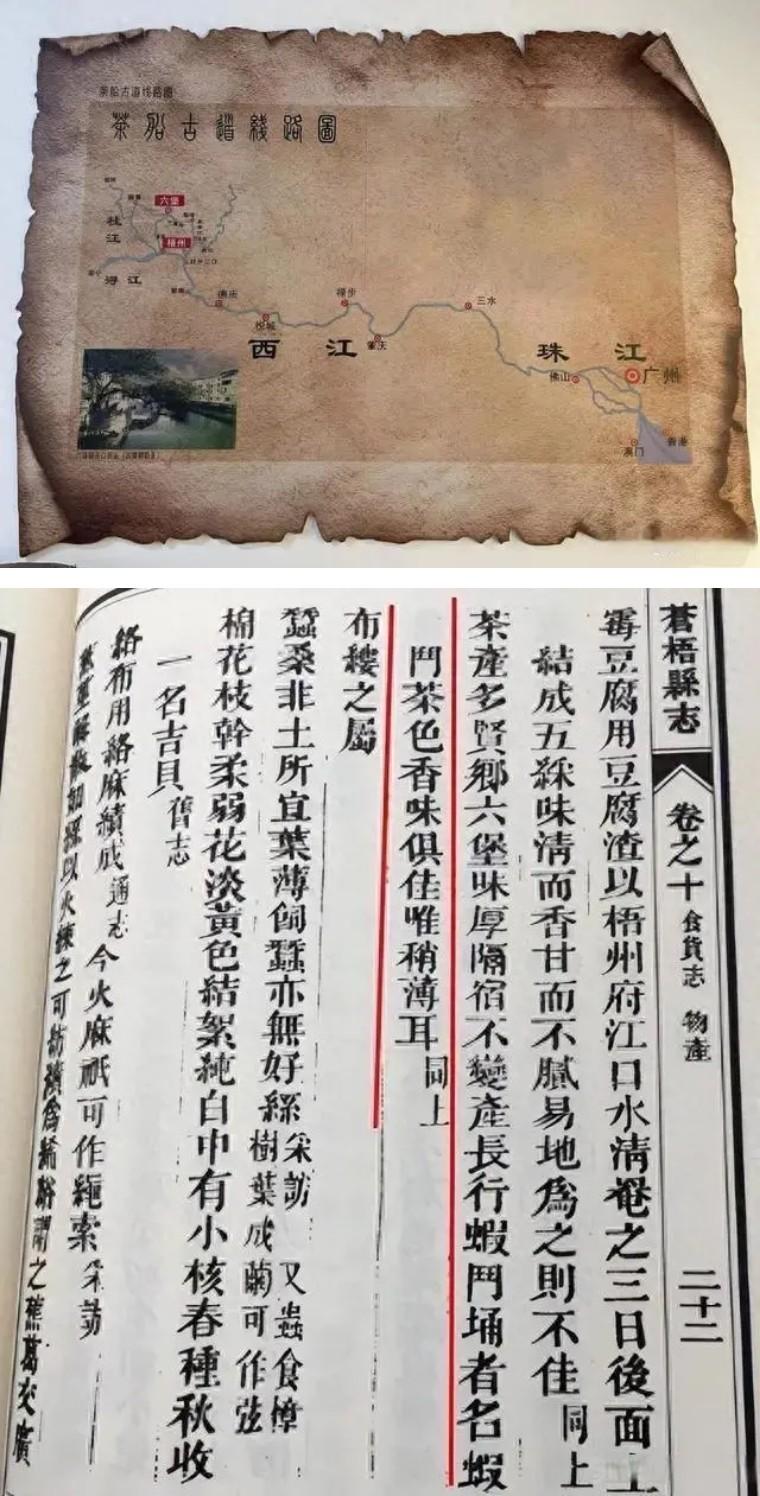 茶船古道线路圖
茶船古道綫路圖
六堡
梧州
桂江
潯江
德庆
悦城
禄步
肇庆
三水
西江
珠江
佛山
广州
澳门
香港
蒼梧縣志
卷之十 食貨志 物產
二十二
霉豆腐用豆腐渣以梧州府江口水清罨之三日後面上
結成五綵味清而香甘而不膩易地為之則不佳 同上
茶產多賢鄉六堡味厚隔宿不變產長行蝦鬥埇者名蝦
鬥茶色香味俱佳唯稍薄耳 同上
布縷之屬
蠶桑非土所宜葉薄飼蠶亦無好絲 采訪 又蟲食樟
樹葉成繭可作弦
棉花枝幹柔弱花淡黃色結絮純白中有小核春種秋收
一名吉貝 舊志
絡布用絡麻績成 通志 今火麻祇可作繩索 采訪
以火練之可紡績為絺綌謂之蕉葛交廣